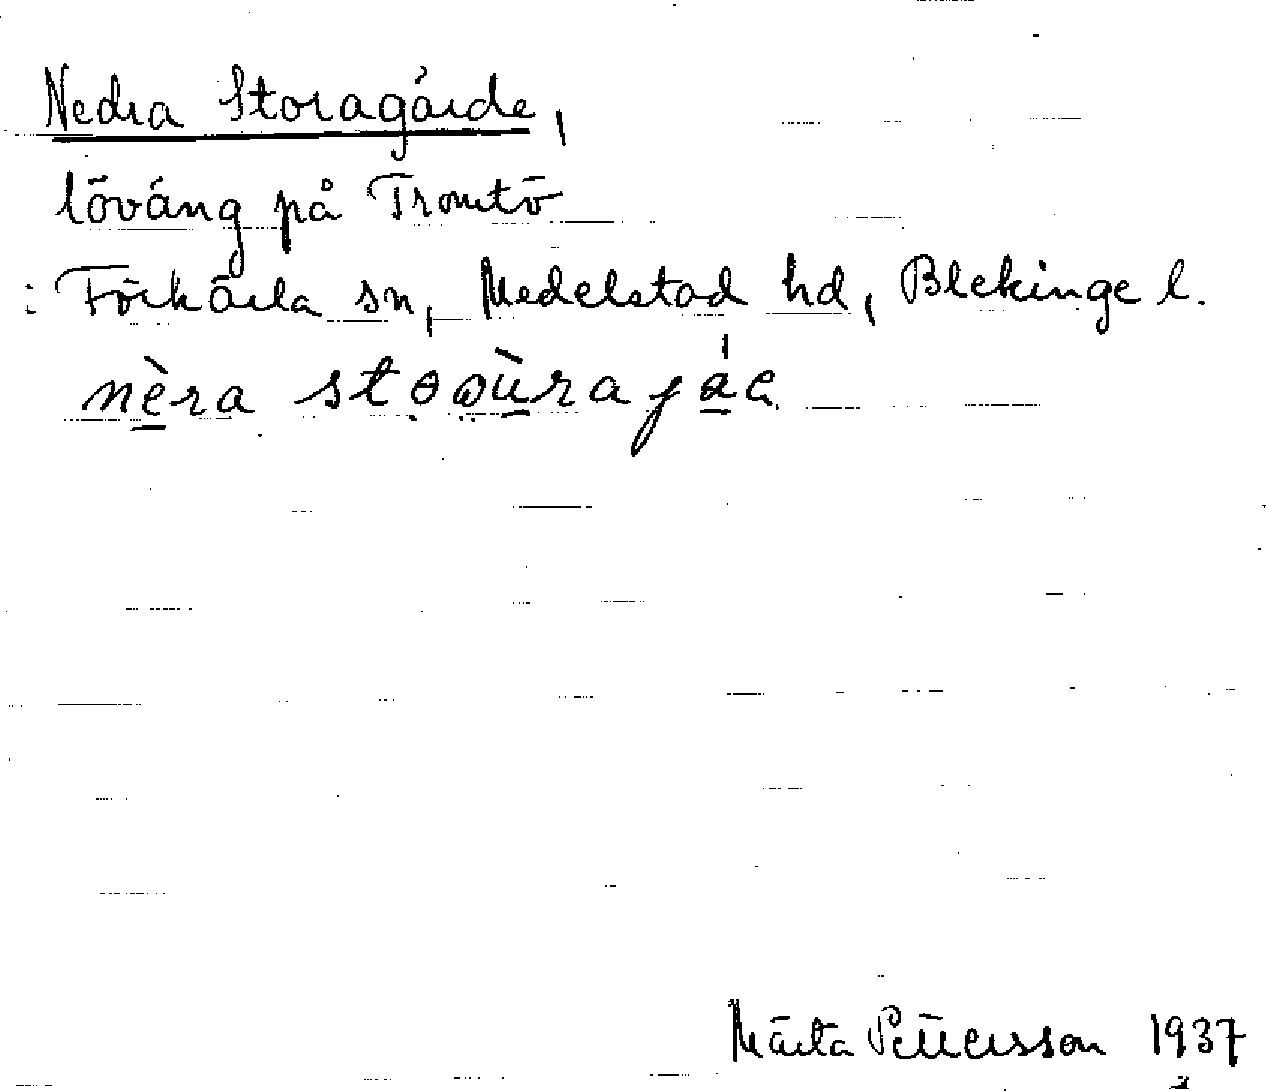 Nedra Storagärde,
lövång på Tromtö
i Förkärla sn, Medelstad hd, Blekinge l.
Märta Pettersson 1937